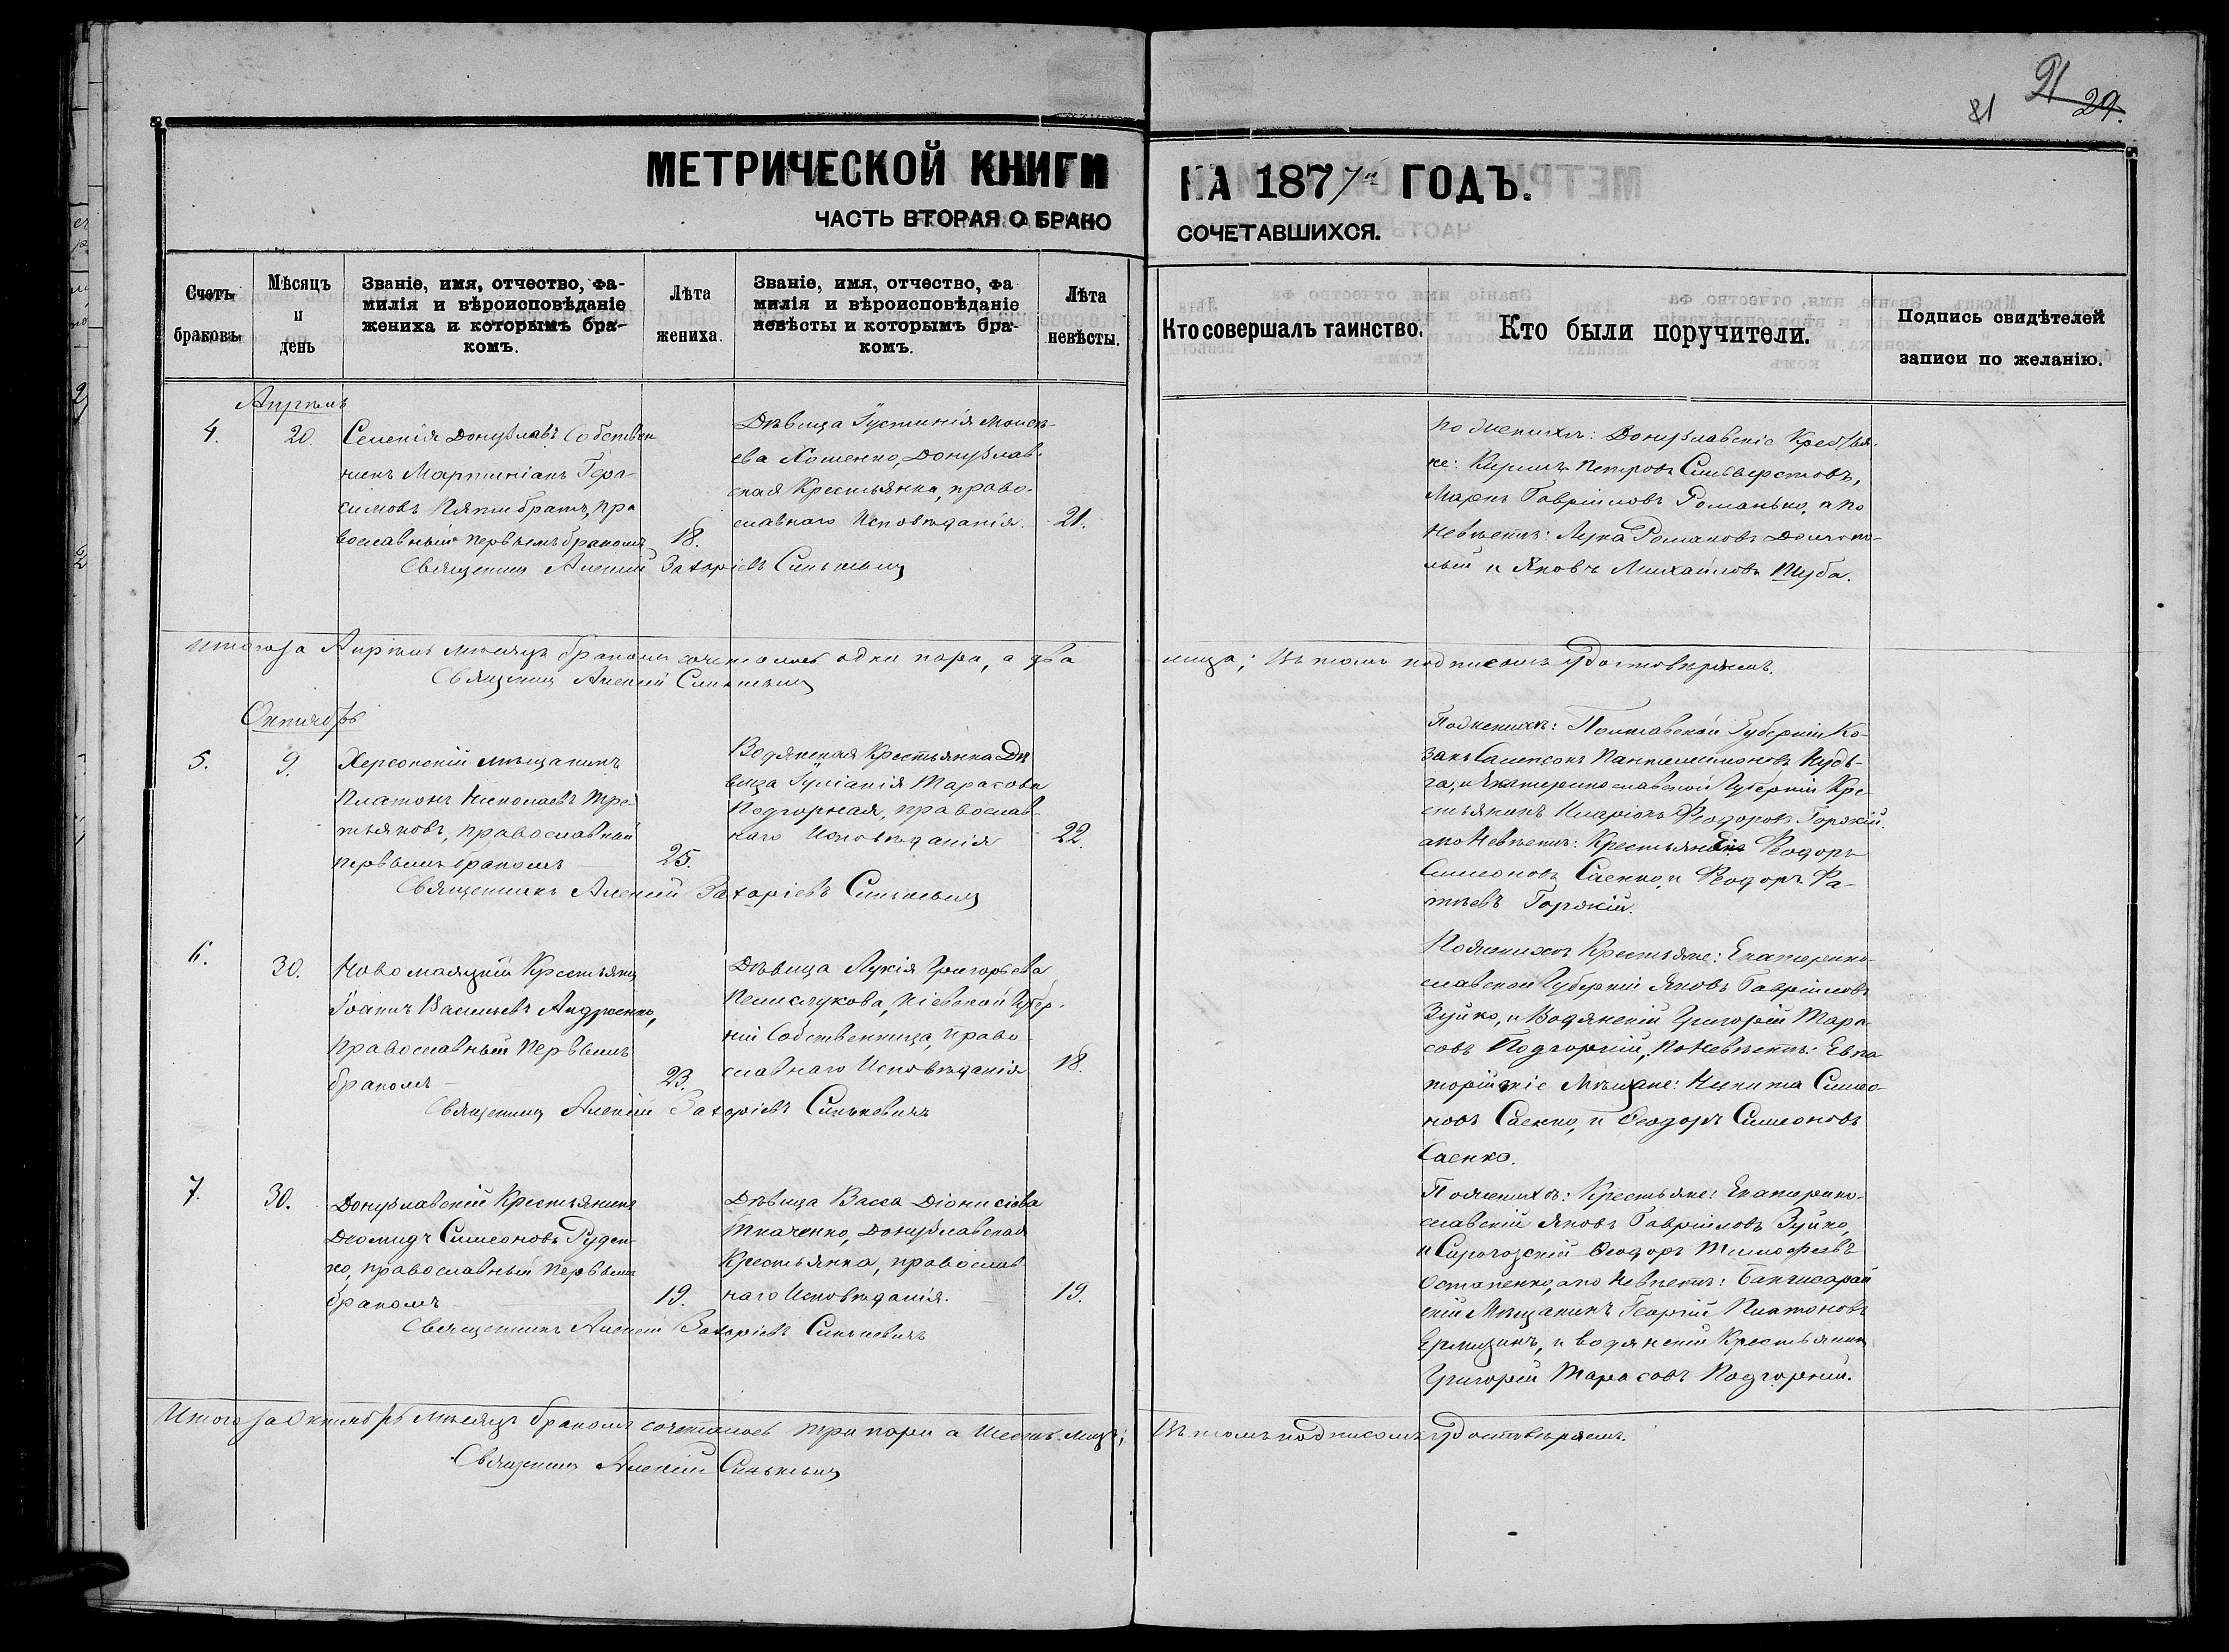 91
81
29.
МЕТРИЧЕСКОЙ КНИГИ
НА 1877й ГОДЪ.
ЧАСТЬ ВТОРАЯ О БРАКО
СОЧЕТАВШИХСЯ.
Счетъ браковъ
Мѣсяцъ и день
Званіе, имя, отчество, фа-
милія и вѣроисповѣданіе
жениха и которымъ бра-
комъ.
Лѣта жениха.
Званіе, имя, отчество, фа
милія и вѣроисповѣданіе
невѣсты и которымъ бра-
комъ.
Лѣта невѣсты.
Кто совершалъ таинство.
Кто были поручители.
Подпись свидѣтелей
записи по желанію.
Апрѣль
4.
20.
Селенія Донузлавъ Собствен
никъ Мартиніанъ Гера-
симовъ Пятибратъ, пра
вославный первымъ бракомъ
18.
Дѣвица Іустинія Моисѣ-
ева Хоменко, Донузлав-
ская Крестьянка, право-
славнаго Исповѣданія.
21.
Священникъ Алексій Захаріевъ Синькевичъ
По женихѣ: Донузлавскіе Крестья-
не: Кириллъ Петровъ Сильверстовъ,
Маркъ Гавріиловъ Романько, а по
Невѣстѣ: Лука Романовъ
и Яковъ Михайловъ Шуба.
Итого за Апрѣль мѣсяцъ бракомъ сочеталось одна пара, а два
лица; Въ томъ подписомъ удостовѣряемъ.
Священникъ Алексій Синькевичъ
Октябрь
5.
9.
Херсонскій мѣщанинъ
Платонъ Николаевъ Тре-
тьяковъ, православный
первымъ бракомъ
25.
Водянская Крестьянка Дѣ
вица Іуліанія Тарасова
Подгорная, православ-
наго Исповѣданія
22.
Священникъ Алексій Захаріевъ Синькевичъ
По женихѣ: Полтавской Губерніи Ко-
закъ Сампсонъ Пантелеимоновъ Кудь-
га, и Екатеринославской Губерніи Кре-
стьянинъ Иларіонъ Феодоровъ Горякій.
а по Невѣстѣ: Крестьяне Феодоръ
Симеоновъ Саенко, и Феодоръ
Горякій.
6.
30.
Новомаяцкій Крестьянинъ
Іоаннъ Васильевъ Андрюенко,
Православный Первымъ
бракомъ
23.
Дѣвица Лукія Григорьева
Пелислукова, Кіевской Губер-
ніи Собственница, право-
славнаго Исповѣданія
18.
Священникъ Алексій Захаріевъ Синькевичъ
По женихѣ Крестьяне: Екатерино-
славской Губерніи Яковъ Гавріиловъ
Зуйко, и Водянскій Григорій Тара-
совъ Подгорній, По Невѣстѣ: Евпа-
торійскіе Мѣщане: Никита Симео-
новъ Саенко, и Феодоръ Симеоновъ
Саенко.
7.
30.
Донузлавскій Крестьянинъ
Диомидъ Симеоновъ Руден-
ко, православный Первымъ
бракомъ
19.
Дѣвица Васса Діонисіева
Ткаченко, Донузлавская
Крестьянка, православ
наго Исповѣданія.
19.
Священникъ Алексій Захаріевъ Синькевичъ
По женихѣ: Крестьяне: Екатерино-
славскій Яковъ Гавріиловъ Зуйко,
и Сирогозскій Феодоръ Тимофѣевъ
Остапенко, а по Невѣстѣ: Бакчисарай
скій Мѣщанинъ Георгій Платоновъ
и водянскій Крестьянинъ
Григорій Тарасовъ Подгорній.
Итого за Октябрь мѣсяцъ бракомъ сочеталось три пары а шесть лицъ;
Въ томъ подписомъ удостовѣряемъ.
Священникъ Алексій Синькевичъ